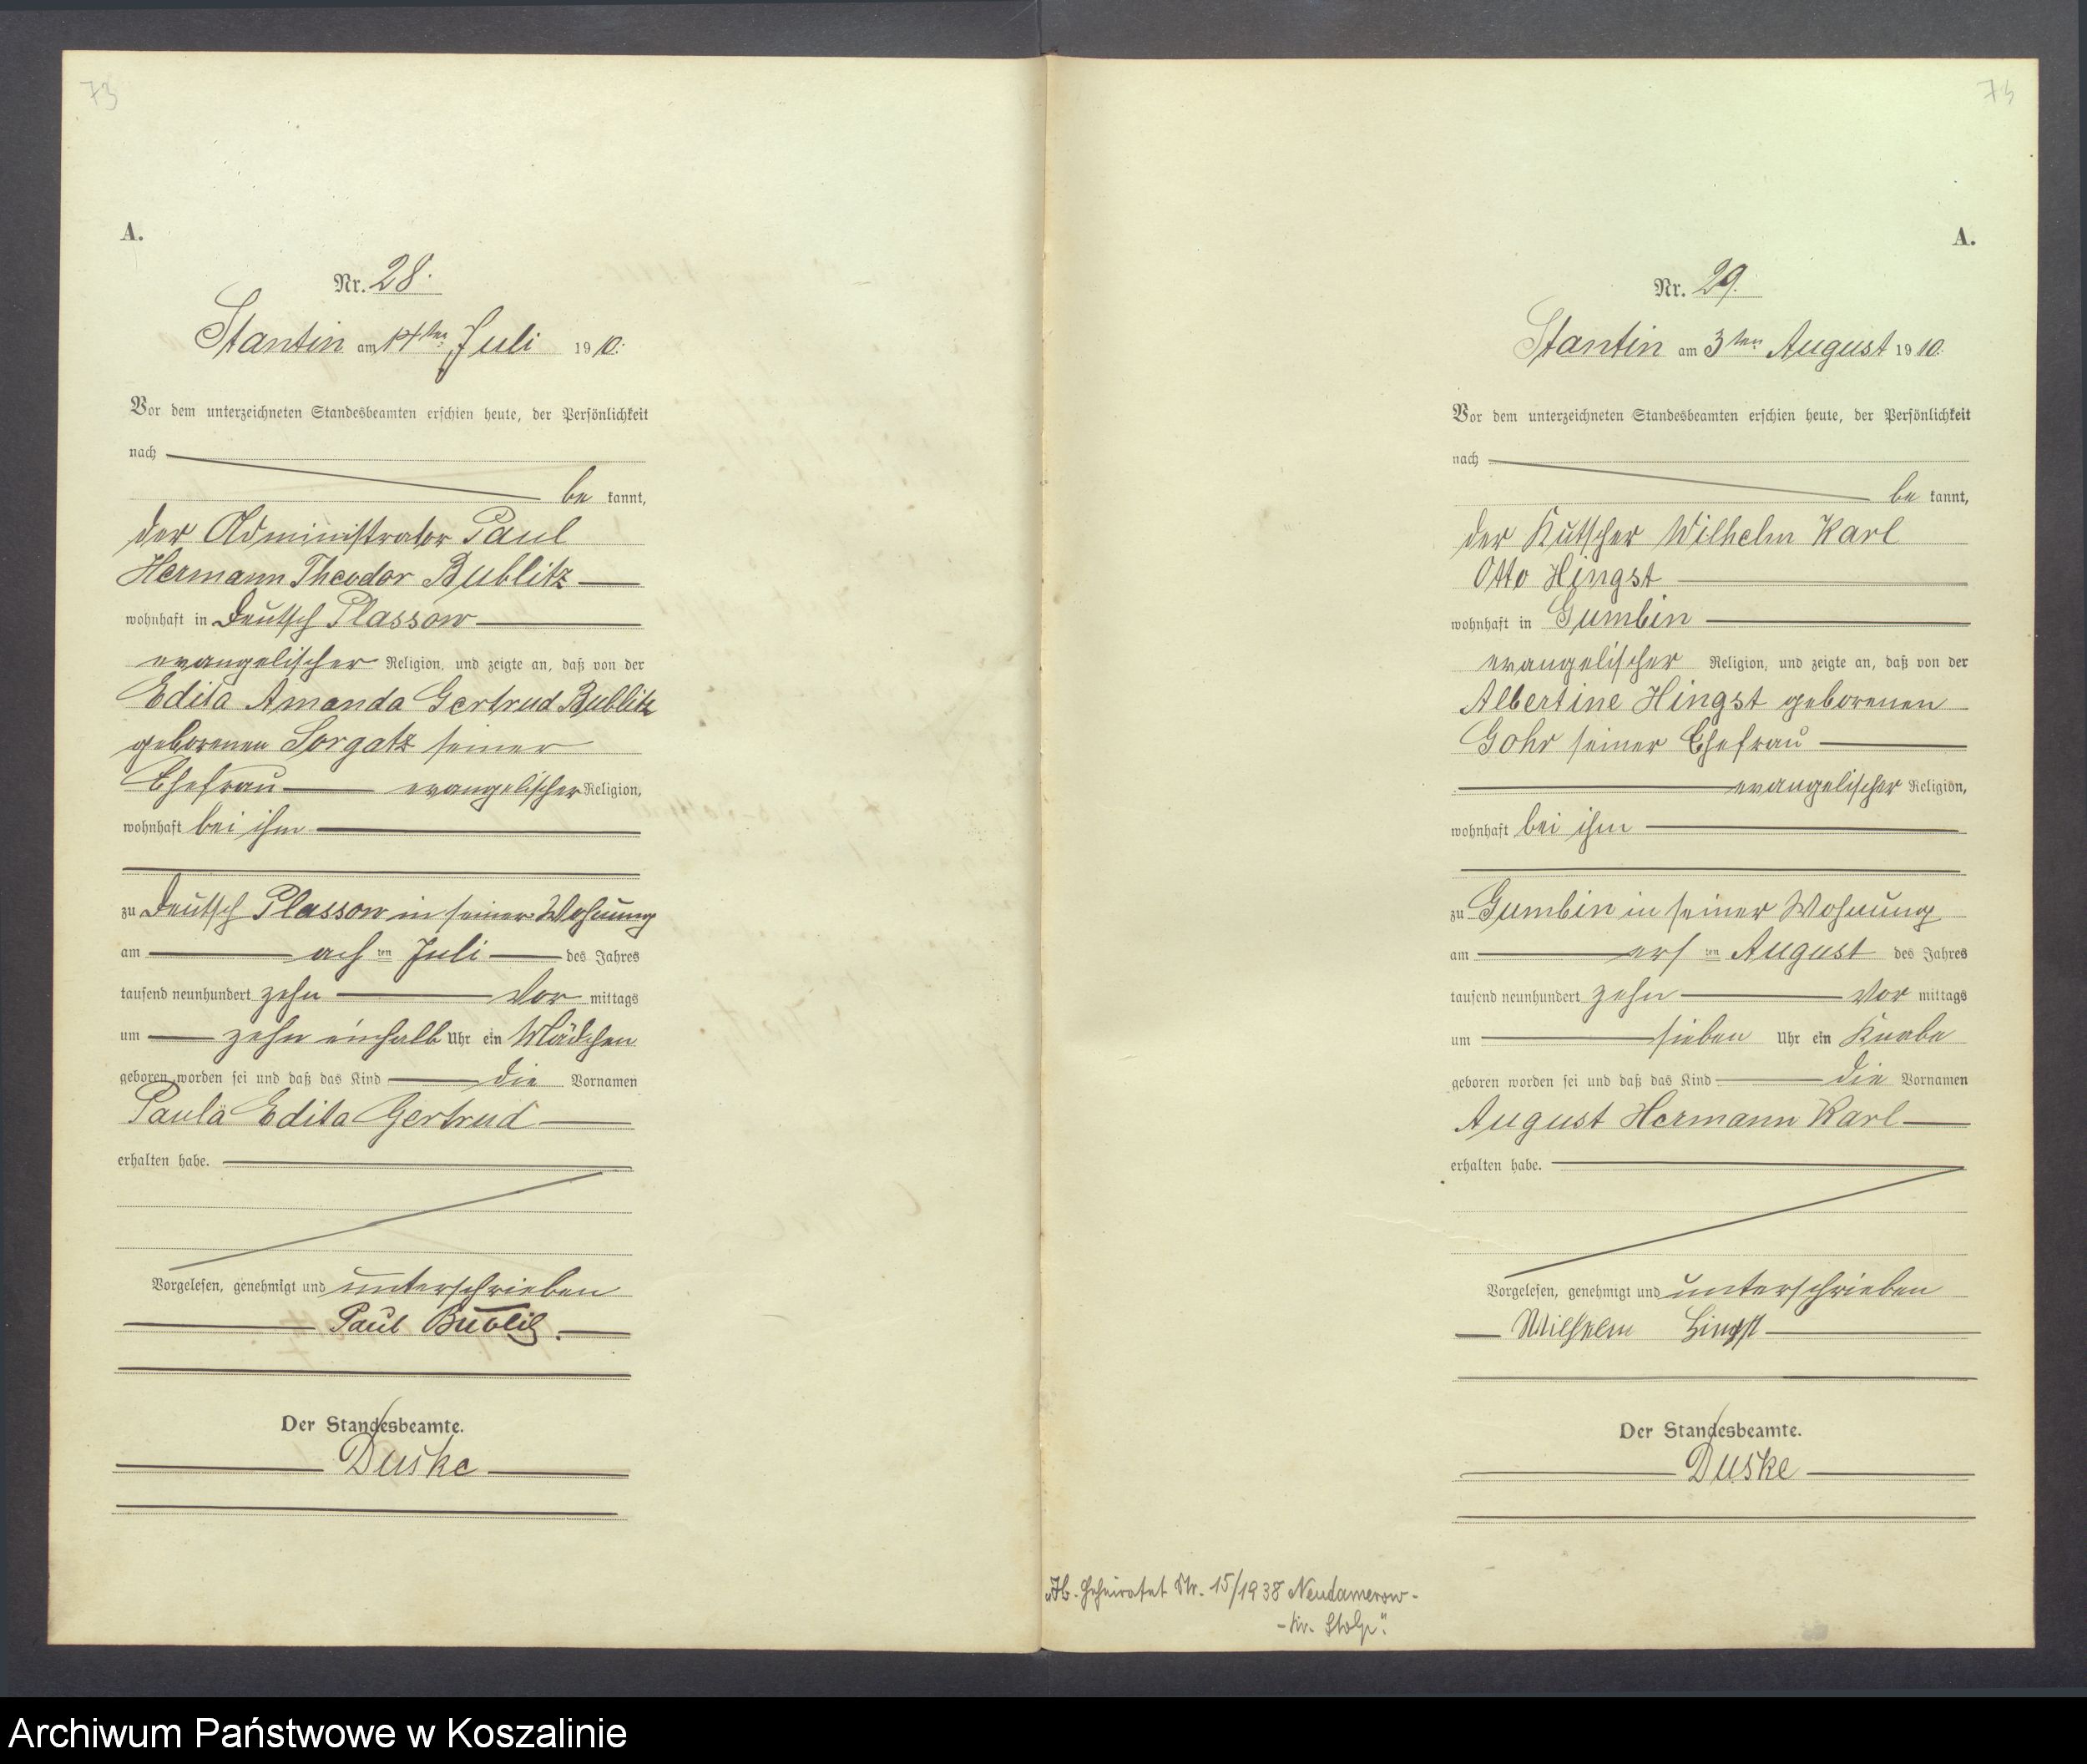 73
A.
Nr. 28.
Stantin am 14ten Juli 1910.
Vor dem unterzeichneten Standesbeamten erschien heute, der Persönlichkeit
nach
be kannt,
der Administrator Paul
Hermann Theodor Bublitz
wohnhaft in Deutsch Plassow
evangelischer Religion, und zeigte an, daß von der
Edita Amanda Gertrud Bublitz
geborenen Sorgatz seiner
Ehefrau evangelischer Religion,
wohnhaft bei ihm
zu Deutsch Plassow in seiner Wohnung
am ach ten Juli des Jahres
tausend neunhundert zehn Vor mittags
um zehn einhalb Uhr ein Mädchen
geboren worden sei und daß das Kind die Vornamen
Paula Edita Gertrud
erhalten habe.
Vorgelesen, genehmigt und unterschrieben
Paul Bublitz.
Der Standesbeamte.
Duske
A.
Nr. 29.
Stantin am 3ten August 1910.
Vor dem unterzeichneten Standesbeamten erschien heute, der Persönlichkeit
nach
be kannt,
der Kutscher Wilhelm Karl
Otto Hingst
wohnhaft in Gumbin
evangelischer Religion, und zeigte an, daß von der
Albertine Hingst geborenen
Gohr seiner Ehefrau
evangelischer Religion,
wohnhaft bei ihm
zu Gumbin in seiner Wohnung
am ers ten August des Jahres
tausend neunhundert zehn Vor mittags
um sieben Uhr ein Knabe
geboren worden sei und daß das Kind die Vornamen
August Hermann Karl
erhalten habe.
Vorgelesen, genehmigt und unterschrieben
Wilhelm Hingst
Der Standesbeamte.
Duske
Geheiratet Nr. 15/1938 Neudamerow-
-Kr. Stolp."
Archiwum Państwowe w Koszalinie